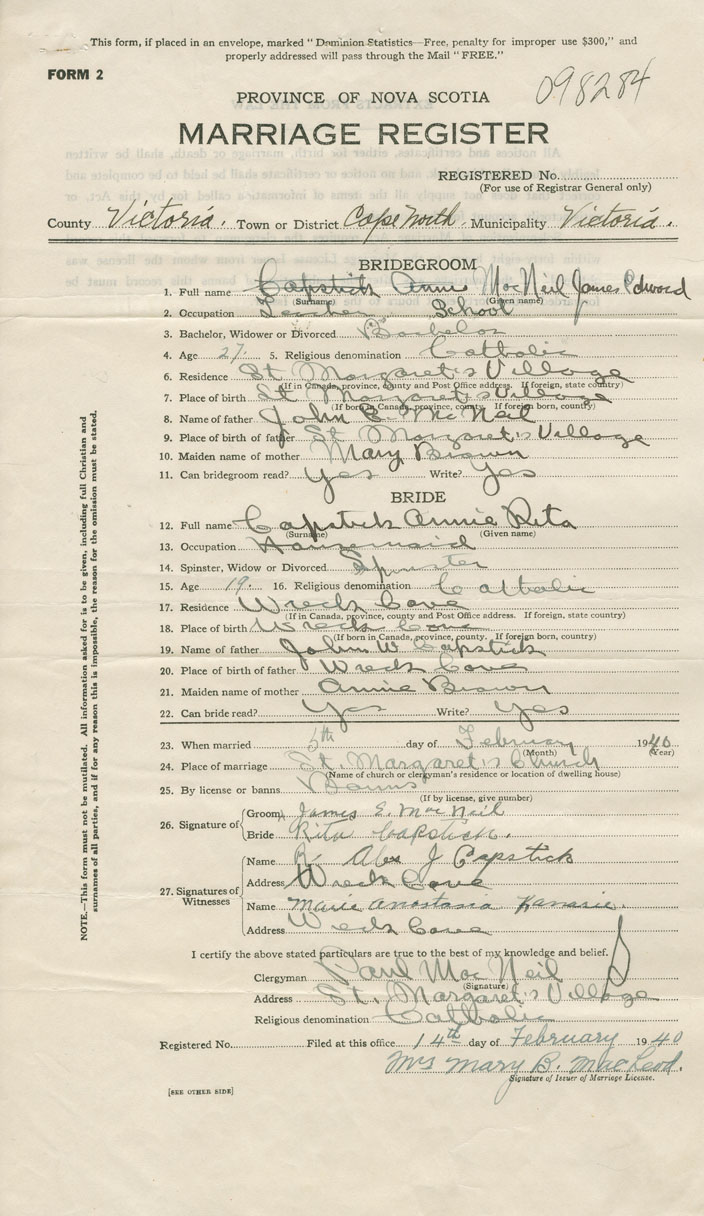 This form, if placed in an envelope, marked "Dominion Statistics—Free, penalty for improper use $300," and
properly addressed will pass through the Mail "FREE."
FORM 2
098284
PROVINCE OF NOVA SCOTIA
MARRIAGE REGISTER
REGISTERED No.
(For use of Registrar General only)
County Victoria. Town or District Cape North. Municipality Victoria.
BRIDEGROOM
1. Full name Capstick Annie MacNeil James Edward
(Surname) (Given name)
2. Occupation Teacher School
3. Bachelor, Widower or Divorced Bachelor
4. Age 27. 5. Religious denomination Catholic
6. Residence St Margaret's Village
(If in Canada, province, county and Post Office address. If foreign, state country)
7. Place of birth St Margaret's Village
(If born in Canada, province, county. If foreign born, country)
8. Name of father John E. McNeil
9. Place of birth of father St Margaret's Village
10. Maiden name of mother Mary Brown
11. Can bridegroom read? Yes Write? Yes
BRIDE
12. Full name Capstick Annie Rita
(Surname) (Given name)
13. Occupation Housemaid
14. Spinster, Widow or Divorced Spinster
15. Age 19. 16. Religious denomination Catholic
17. Residence Wreck Cove
(If in Canada, province, county and Post Office address. If foreign, state country)
18. Place of birth Wreck Cove
(If born in Canada, province, county. If foreign born, country)
19. Name of father John W Capstick
20. Place of birth of father Wreck Cove
21. Maiden name of mother Annie Brown
22. Can bride read? Yes Write? Yes
23. When married 5th day of February 1940
(Month) (Year)
24. Place of marriage St. Margaret's Church
(Name of church or clergyman's residence or location of dwelling house)
25. By license or banns Banns
(If by license, give number)
26. Signature of Groom James E. MacNeil
Bride Rita Capstick.
27. Signatures of Witnesses
Name Alex J Capstick
Address Wreck Cove
Name Marie Anastasia
Address Wreck Cove
I certify the above stated particulars are true to the best of my knowledge and belief.
Clergyman Paul MacNeil
(Signature)
Address St. Margaret's Village
Religious denomination Catholic
Registered No. Filed at this office 14th day of February 1940
Mrs Mary B. MacLeod.
Signature of Issuer of Marriage License.
[SEE OTHER SIDE]
NOTE.—This form must not be mutilated. All information asked for is to be given, including full Christian and
surnames of all parties, and if for any reason this is impossible, the reason for the omission must be stated.